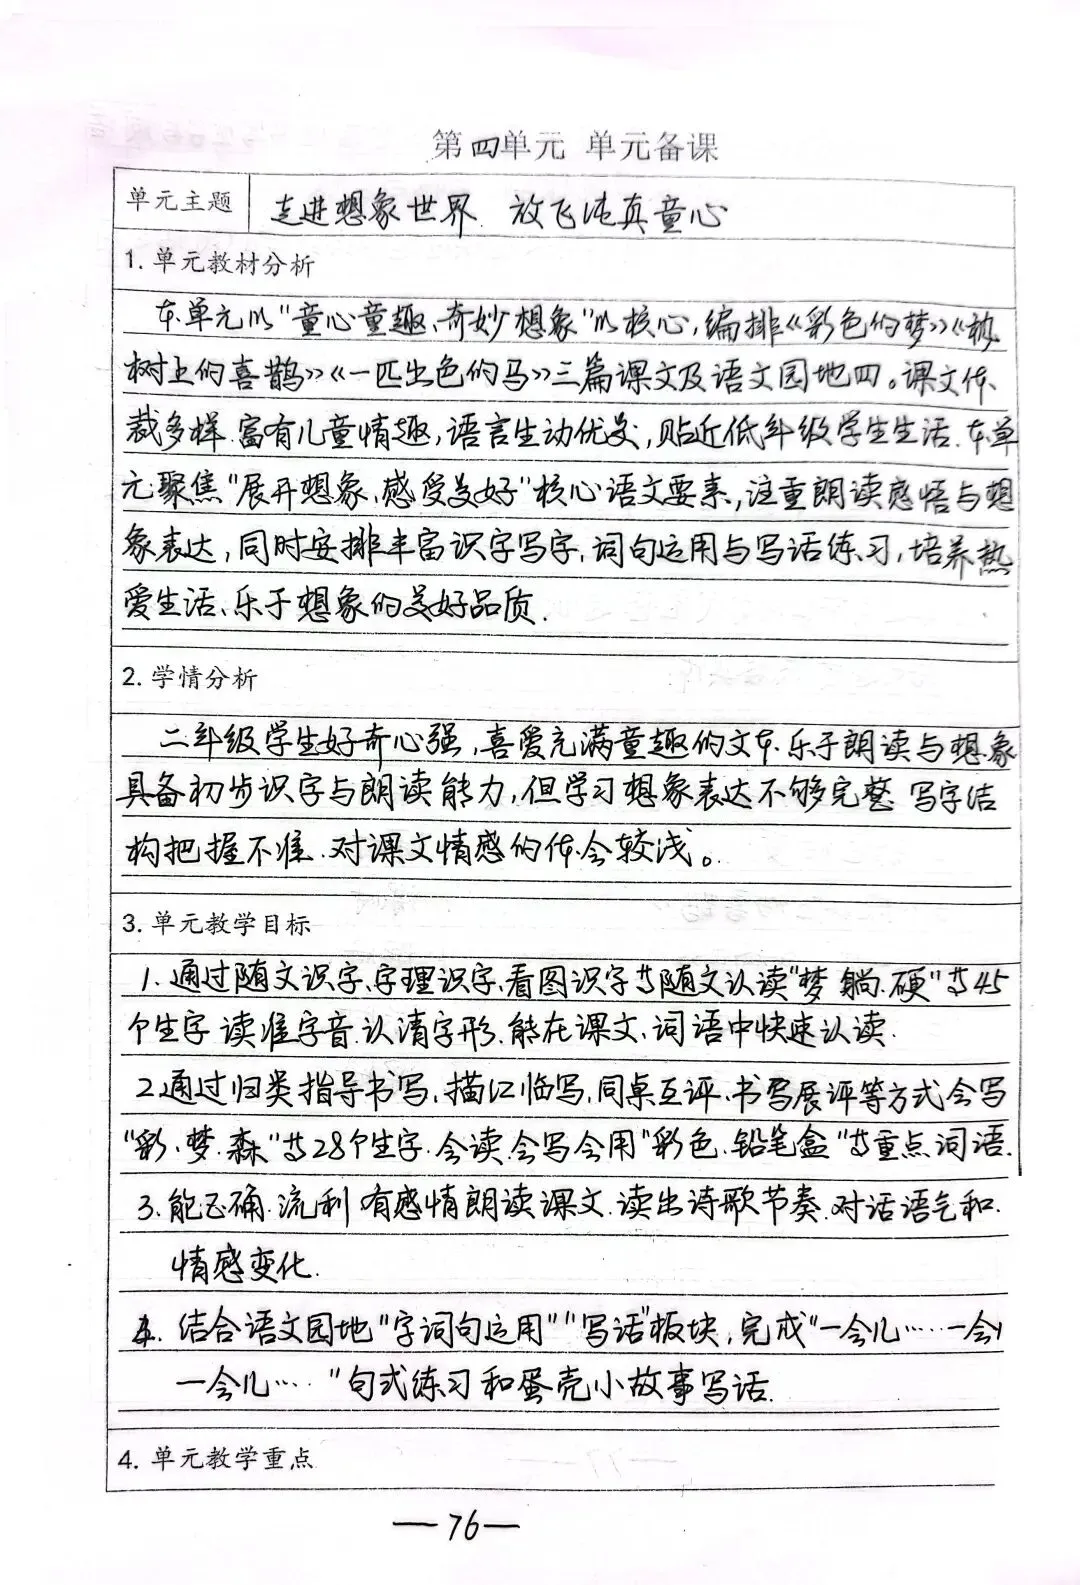 第四单元 单元备课
单元主题 走进想象世界 放飞纯真童心
1. 单元教材分析
本单元以"童心童趣、奇妙想象"为核心,编排《彩色的梦》《枫
树上的喜鹊》《一匹出色的马》三篇课文及语文园地四。课文体
裁多样.富有儿童情趣,语言生动优美,贴近低年级学生生活.本单
元聚焦"展开想象,感受美好"核心语文要素,注重朗读感悟与想
象表达,同时安排丰富识字写字,词句运用与写话练习,培养热
爱生活、乐于想象的美好品质.
2. 学情分析
二年级学生好奇心强,喜爱充满童趣的文本.乐于朗读与想象
具备初步识字与朗读能力,但学习想象表达不够完整 写字结
构把握不准.对课文情感的体会较浅。
3. 单元教学目标
1.通过随文识字,字理识字,看图识字等随文认读"梦 躺.硬"等45
个生字 读准字音.认清字形.能在课文.词语中快速认读.
2通过归类指导书写,描红临写,同桌互评.书写展评等方式会写
"彩.梦.森"等28个生字.会读.会写会用"彩色.铅笔盒"等重点词语.
3.能正确.流利 有感情朗读课文.读出诗歌节奏.对话语气和.
情感变化.
4. 结合语文园地"字词句运用""写话"板块,完成"一会儿……一会儿
一会儿……"句式练习和蛋壳小故事写话.
4. 单元教学重点
—76—